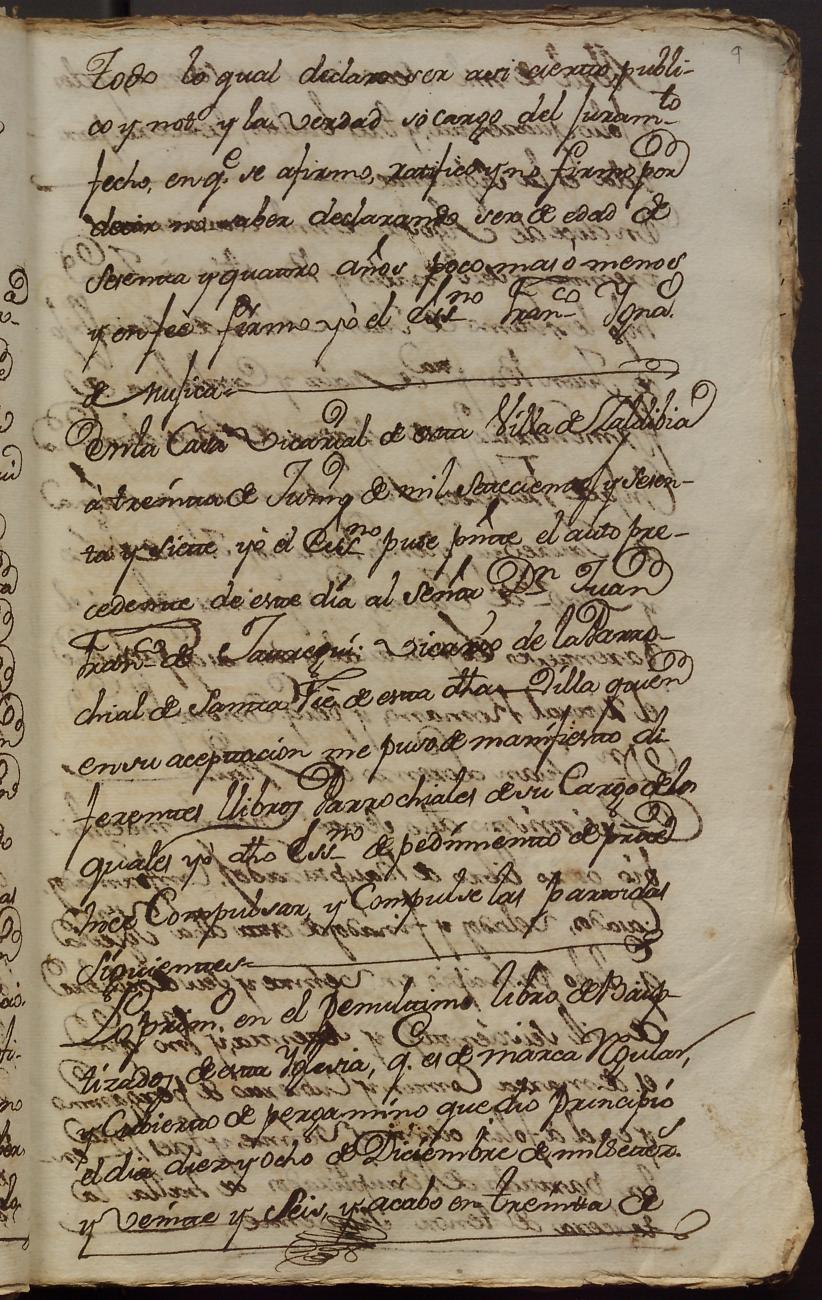 9
Todo lo qual declaro ser asi cierto, publi-
co y not.º y la verdad so cargo del Juram.to
fecho, en q.e se afirmo, ratifico y no firmo por
decir no saber declarando ser de edad de
sesenta y quatro años poco mas o menos
y en feè firmo yò el Ess.no Fran.co Ygn.
de Musica
En la Casa Vicarial de esta Villa de Zaldibia
à treinta de Junio de mil setecientos y sesen-
ta y siete yò el Ess.no puse pñte el auto pre-
cedente de este dia al Señor Dn Juan
Fran.co de Jauregui: Vicario de la Parro-
chial de Santa Fiè de esta dha Villa quien
en su aceptacion me puso de manifiesto di-
ferentes Libros Parrochiales de su Cargo de los
quales yò dho Ess.no de pedimento de
hice Compulsar, y Compulse las partidas
siguientes
Lo prim.º en el penultimo libro de Baup-
tizados de esta Yglesia, q.e es de marca Regular,
y Cubierto de pergamino que dio principio
el dia diez y ocho de Diciembre de mil setecs.
y veinte y seis, y acabo en treinta de